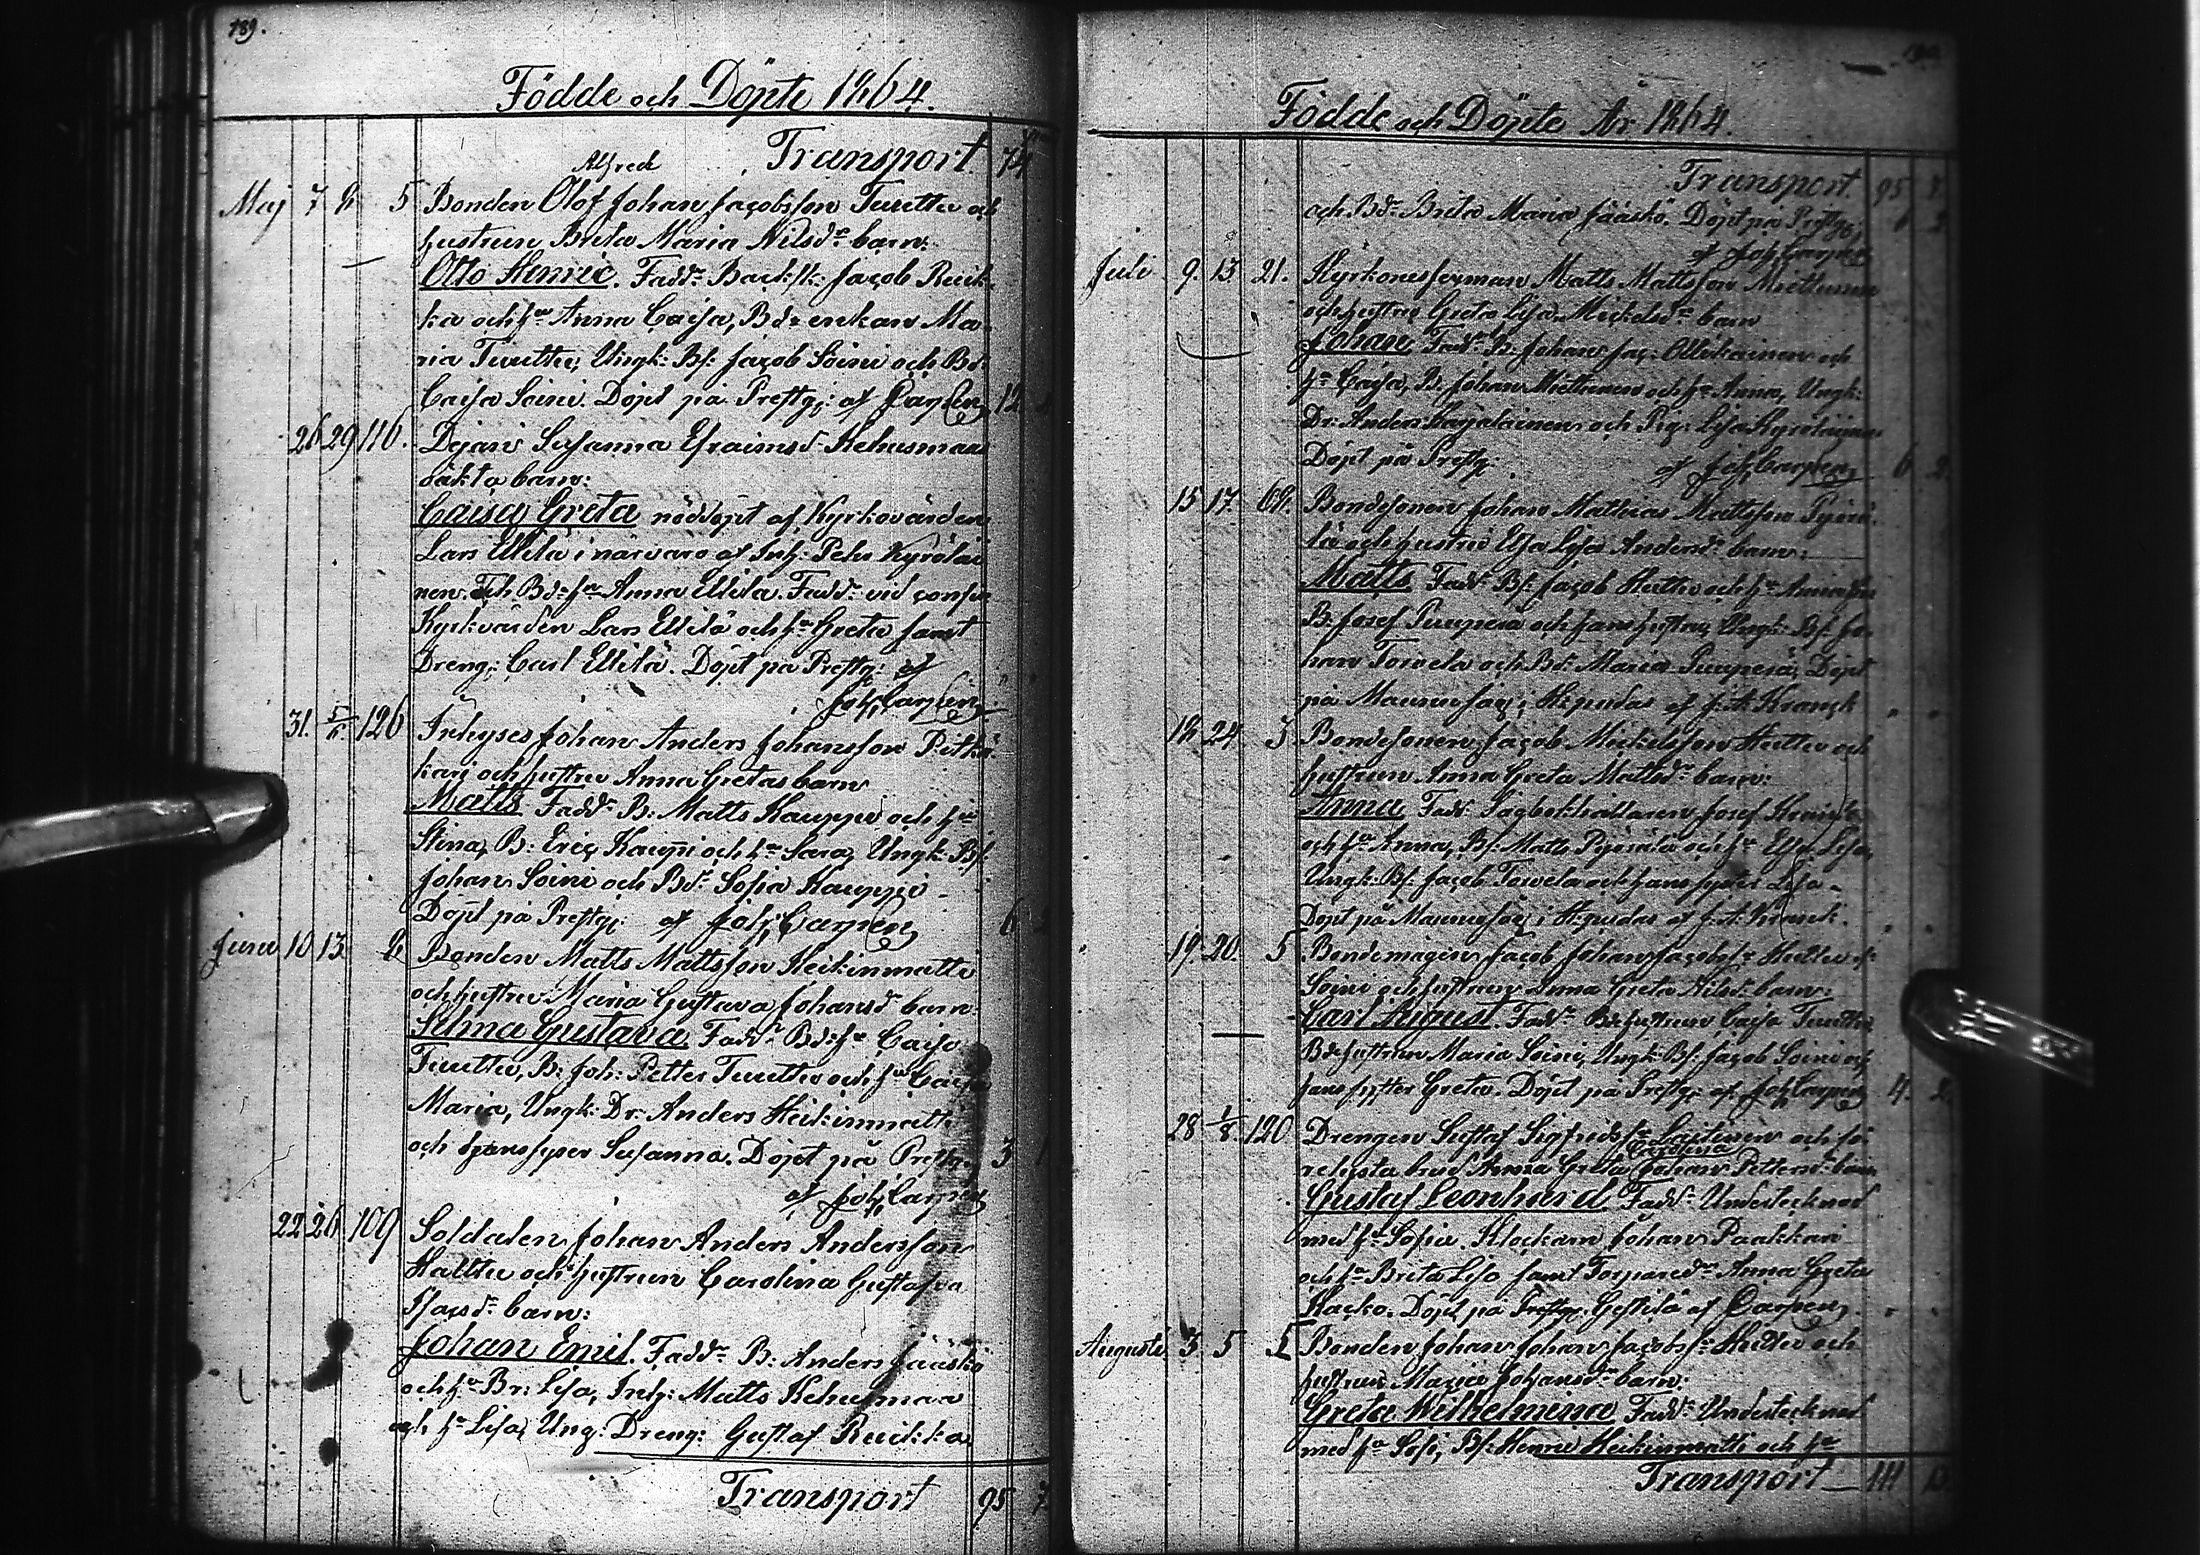 189.
Födde och Döpte 1864.
Alfred Transport. 74
Maj 7 8 5 Bonden Olof Johan Jacobsson Tuuttu och
hustrun Brita Maria Nilsdr barn:
Otto Henric. Fadd: Jacob Ruik-
ka och hu Anna Caisa, Bde enkan Ma-
ria Tuuttu, Ungk: Bs: Jacob Soini och Bd:
Caisa Soini. Döpt på Prestg: af Carpen 12
26 29 116. Pigan Susanna Efraimsd Kehusmaas
oäkta barn:
Caisa Greta nöddöpt af Kyrkovärden
Lars Ellilä i närvaro af Inh: Peter Kyröläi
nen och Bde hu Anna Ellilä. Fadd: vid
Kyrkvärden Lars Ellilä och hu Greta samt
Dreng: Carl Ellilä. Döpt på Prestg: af
Joh. Carpen
31. 5/6. 126 Inhyses Johan Anders Johansson Pitkä-
kari och hustru Anna Gretas barn
Matts Fadd: B: Matts Kauppi och hu
Stina, B: Eric Kauppi och hu Sara, Ungk: Bs:
Johan Soini och Bdr Sofia Kauppi
Döpt på Prestg: af Joh. Carpen 6
Juni 10 13 8 Bonden Matts Mattsson Heikinmatti
och hustru Maria Gustava Johansd barn
Selma Gustava Fadd: Bde hu Caisa
Tuuttu, B: Joh: Petter Tuuttu och hu Caisa
Maria, Ungk: Dr: Anders Heikinmatti
och hans syster Susanna. Döpt på Prestg. 3 1
af Joh. Carpen
22 26 109 Soldaten Johan Anders Andersson
Halttu och hustrun Carolina Gustafva
Isacsdr barn:
Johan Emil. Fadd: B: Anders Jääskö
och hu Br: Lisa, Inh: Matts Kehusmaa
och hu Lisa, Ung: Dreng: Gustaf Ruikka
Transport 95 7
Födde och Döpte År 1864.
Transport. 95 7.
och Bdr Brita Maria Jääskö. Döpt på Prestg: 6 2
af Joh. Carpen
Juli 9. 13 21. Kyrkones Matts Mattsson Miettunen
och hustru Greta Lisa Mickelsdr barn
Johan Fadd: B: Johan Jac: Ollikainen och
hu Caisa, B: Johan Miettunen och hu Anna, Ungk:
Dr: Anders Karjalainen och Pig: Lisa Kyröläinen
Döpt på Prestg: af Joh. Carpen 6 2.
15 17. 68. Bondesonen Johan Mathias Mattsson Pyörä-
lä och hustru Elsa Lisa Andersdr barn:
Matts Fadd: Bs: Jacob Huttu och hu Anna
B: Josef Puuperä och hans hustru, Ungk: Bs: Jo-
han Toivola och Bd: Maria Puuperä, Döpt
på i Hpudas af J. A. Kranck " "
18 24 3 Bondesonen Jacob Mickelsson Huttu och
hustrun Anna Greta Mattsdr barn:
Anna Fadd: Sågbokhållaren Josef
och hu Anna, Bs: Matts Pyörälä och hu Elsa Lisa,
Ungk: Bs: Jacob Toivola och hans syster Lisa
Döpt på i Hpudas af J. A. Kranck. " "
19. 20. 5 Bondemågen Jacob Johan Jacobss:
Soini och hustrun Anna Greta Nilsdr barn:
Carl August. Fadd: Bde hustrun Caisa Tuuttu,
Bde hustrun Maria Soini, Ungk: Bs: Jacob Soini och
hans syster Greta. Döpt på Prestg: af Joh Carpen 4. 2.
28 1/8. 120 Drengen Gustaf Sigfridss Laitinen och fö-
Carolina
relysta brud Anna Greta Johan Pettersdr barn
Gustaf Leonhard Fadd: Undertecknad
med hu Sofia. Klockarn Johan Paakkari
och hu Brita Lisa samt Torparedr Anna Greta
Kacko. Döpt på af Carpen. " "
Augusti 3 5 5 Bonden Johan Johan Jacobss: Huttu och
hustrun Maria Johansdr barn:
Greta Wilhelmina Fadd: Undertecknad
med hu Sofi, Bs: Henric Heikinmatti och hu
Transport 111